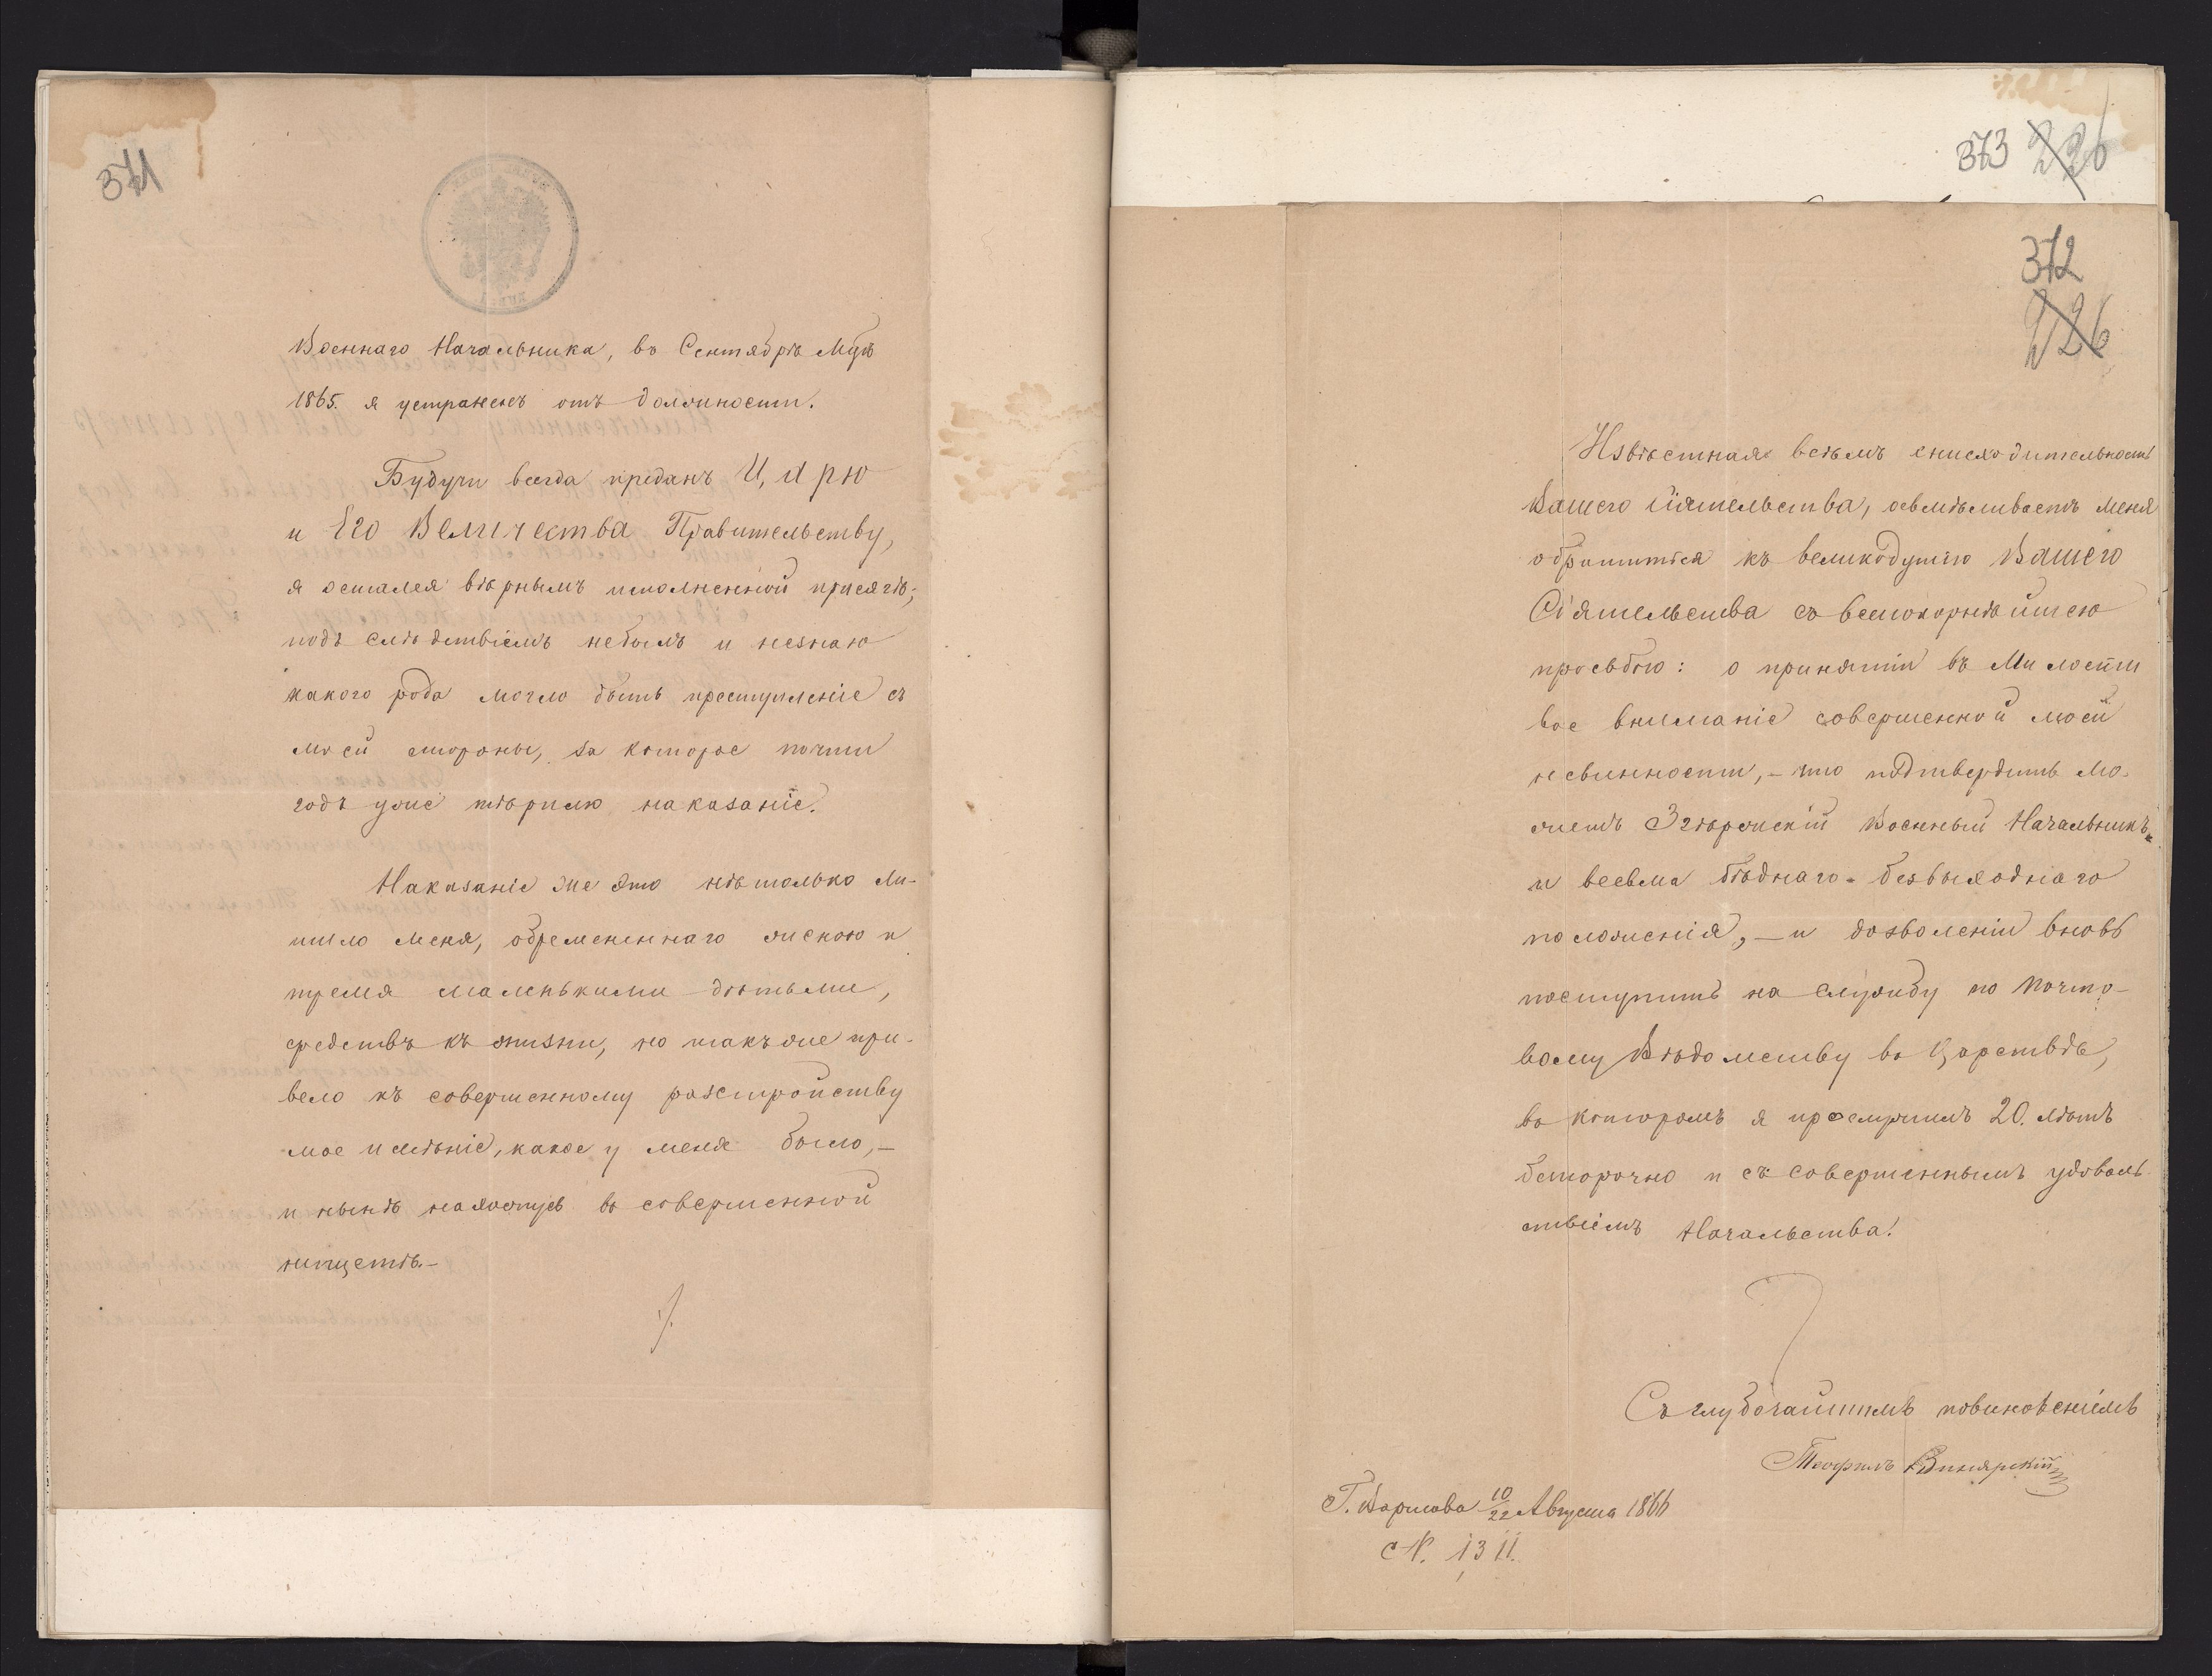 371
Военнаго Начальника, въ Сентябрѣ Мцѣ
1865. я устраненъ отъ должности.
Будучи всегда преданъ Царю
и Его Величества Правительству,
я остался вѣрнымъ исполненной присягѣ;
подъ слѣдствіемъ небылъ и незнаю
какого рода могло быть преступленіе съ
моей стороны, за которое почти
годъ уже тѣрплю наказаніе.
Наказаніе же это нѣтолько ли-
шило меня, обремененнаго женою и
тремя маленькими дѣтьми,
средствъ къ жизни, но такъ же при-
вело къ совершенному разстройству
мое имѣніе, какое у меня было, —
и нынѣ нахожусь въ совершенной
нищетѣ. —
373 226
372
226
Извѣстная всѣмъ снисходительность
Вашего Сіятельства, осмѣливаетъ меня
обратится къ великодушію Вашего
Сіятельства съ всепокорнѣйшею
просьбою: о принятіи въ Милости
вое вниманіе совершенной моей
невинности, — что подтвердить мо-
жетъ Згѣржскій Военный Начальникъ,
и весьма бѣднаго безвыходнаго
положенія, — и дозволеніи вновь
поступить на службу по Почто-
вому Вѣдомству въ Царствѣ,
въ которомъ я прослужилъ 20. лѣтъ
безпорочно и съ совершеннымъ удоволь-
ствіемъ Начальства!
Съ глубочайшимъ повиновеніемъ
Теофилъ Винярскій
Г. Варшава 10/22 Августа 1866
N. 1311.